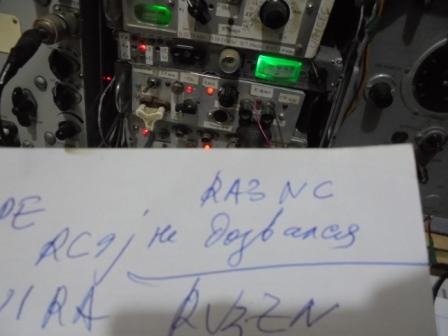 RA3NC
DE
RC9J не дозвался
RA RV3ZN